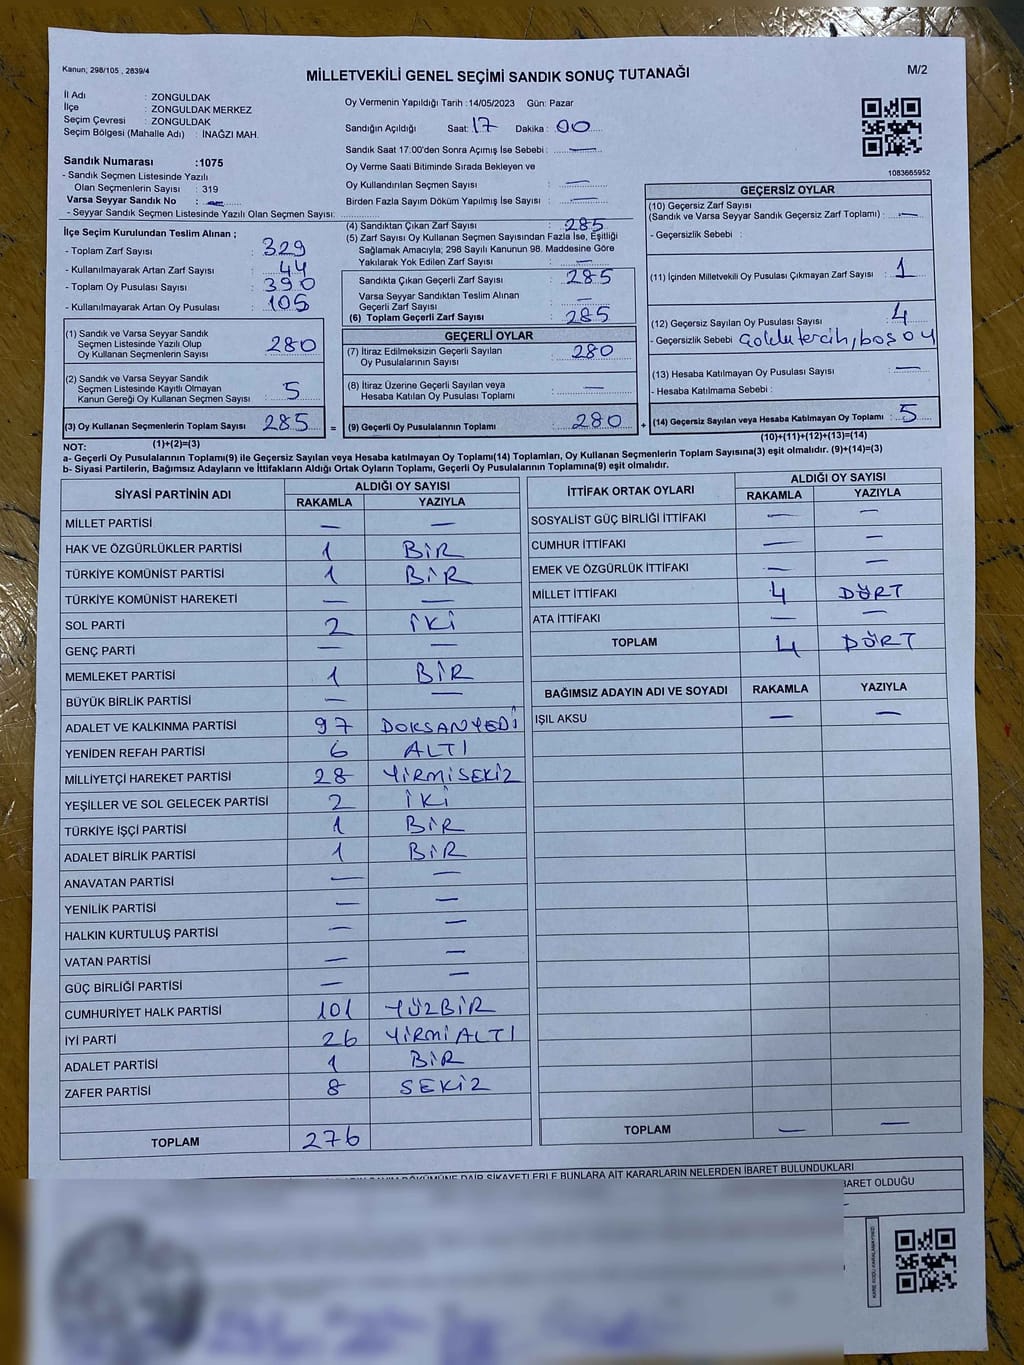 Kanun; 298/105 , 2839/4
MİLLETVEKİLİ GENEL SEÇİMİ SANDIK SONUÇ TUTANAĞI
M/2
İl Adı : ZONGULDAK
İlçe : ZONGULDAK MERKEZ
Seçim Çevresi : ZONGULDAK
Seçim Bölgesi (Mahalle Adı) : İNAĞZI MAH.
Sandık Numarası :1075
- Sandık Seçmen Listesinde Yazılı
Olan Seçmenlerin Sayısı : 319
Varsa Seyyar Sandık No : —
- Seyyar Sandık Seçmen Listesinde Yazılı Olan Seçmen Sayısı:
Oy Vermenin Yapıldığı Tarih :14/05/2023 Gün: Pazar
Sandığın Açıldığı Saat: 17 Dakika : 00
Sandık Saat 17:00'den Sonra Açımış İse Sebebi : —
Oy Verme Saati Bitiminde Sırada Bekleyen ve
Oy Kullandırılan Seçmen Sayısı : —
Birden Fazla Sayım Döküm Yapılmış İse Sayısı : —
1083665952
İlçe Seçim Kurulundan Teslim Alınan ;
- Toplam Zarf Sayısı : 329
- Kullanılmayarak Artan Zarf Sayısı : 44
- Toplam Oy Pusulası Sayısı : 390
- Kullanılmayarak Artan Oy Pusulası : 105
(1) Sandık ve Varsa Seyyar Sandık
Seçmen Listesinde Yazılı Olup
Oy Kullanan Seçmenlerin Sayısı : 280
(2) Sandık ve Varsa Seyyar Sandık
Seçmen Listesinde Kayıtlı Olmayan
Kanun Gereği Oy Kullanan Seçmen Sayısı : 5
(3) Oy Kullanan Seçmenlerin Toplam Sayısı : 285 =
(4) Sandıktan Çıkan Zarf Sayısı : 285
(5) Zarf Sayısı Oy Kullanan Seçmen Sayısından Fazla İse, Eşitliği
Sağlamak Amacıyla; 298 Sayılı Kanunun 98. Maddesine Göre
Yakılarak Yok Edilen Zarf Sayısı : —
Sandıkta Çıkan Geçerli Zarf Sayısı : 285
Varsa Seyyar Sandıktan Teslim Alınan
Geçerli Zarf Sayısı : —
(6) Toplam Geçerli Zarf Sayısı : 285
GEÇERLİ OYLAR
(7) İtiraz Edilmeksizin Geçerli Sayılan
Oy Pusulalarının Sayısı : 280
(8) İtiraz Üzerine Geçerli Sayılan veya
Hesaba Katılan Oy Pusulası Toplamı : —
(9) Geçerli Oy Pusulalarının Toplamı : 280 +
GEÇERSİZ OYLAR
(10) Geçersiz Zarf Sayısı
(Sandık ve Varsa Seyyar Sandık Geçersiz Zarf Toplamı) : —
- Geçersizlik Sebebi :
(11) İçinden Milletvekili Oy Pusulası Çıkmayan Zarf Sayısı : 1
(12) Geçersiz Sayılan Oy Pusulası Sayısı : 4
- Geçersizlik Sebebi Çoklu tercih, boş oy
(13) Hesaba Katılmayan Oy Pusulası Sayısı : —
- Hesaba Katılmama Sebebi :
(14) Geçersiz Sayılan veya Hesaba Katılmayan Oy Toplamı : 5
NOT: (1)+(2)=(3)
(10)+(11)+(12)+(13)=(14)
a- Geçerli Oy Pusulalarının Toplamı(9) ile Geçersiz Sayılan veya Hesaba katılmayan Oy Toplamı(14) Toplamları, Oy Kullanan Seçmenlerin Toplam Sayısına(3) eşit olmalıdır. (9)+(14)=(3)
b- Siyasi Partilerin, Bağımsız Adayların ve İttifakların Aldığı Ortak Oyların Toplamı, Geçerli Oy Pusulalarının Toplamına(9) eşit olmalıdır.
SİYASİ PARTİNİN ADI ALDIĞI OY SAYISI
RAKAMLA YAZIYLA
MİLLET PARTİSİ — —
HAK VE ÖZGÜRLÜKLER PARTİSİ 1 BİR
TÜRKİYE KOMÜNİST PARTİSİ 1 BİR
TÜRKİYE KOMÜNİST HAREKETİ — —
SOL PARTİ 2 İKİ
GENÇ PARTİ — —
MEMLEKET PARTİSİ 1 BİR
BÜYÜK BİRLİK PARTİSİ — —
ADALET VE KALKINMA PARTİSİ 97 DOKSANYEDİ
YENİDEN REFAH PARTİSİ 6 ALTI
MİLLİYETÇİ HAREKET PARTİSİ 28 YİRMİSEKİZ
YEŞİLLER VE SOL GELECEK PARTİSİ 2 İKİ
TÜRKİYE İŞÇİ PARTİSİ 1 BİR
ADALET BİRLİK PARTİSİ 1 BİR
ANAVATAN PARTİSİ — —
YENİLİK PARTİSİ — —
HALKIN KURTULUŞ PARTİSİ — —
VATAN PARTİSİ — —
GÜÇ BİRLİĞİ PARTİSİ — —
CUMHURİYET HALK PARTİSİ 101 YÜZBİR
İYİ PARTİ 26 YİRMİALTI
ADALET PARTİSİ 1 BİR
ZAFER PARTİSİ 8 SEKİZ
TOPLAM 276
İTTİFAK ORTAK OYLARI ALDIĞI OY SAYISI
RAKAMLA YAZIYLA
SOSYALİST GÜÇ BİRLİĞİ İTTİFAKI — —
CUMHUR İTTİFAKI — —
EMEK VE ÖZGÜRLÜK İTTİFAKI — —
MİLLET İTTİFAKI 4 DÖRT
ATA İTTİFAKI — —
TOPLAM 4 DÖRT
BAĞIMSIZ ADAYIN ADI VE SOYADI RAKAMLA YAZIYLA
IŞIL AKSU — —
TOPLAM — —
DÖKÜMÜNE DAİR ŞİKAYETLERLE BUNLARA AİT KARARLARIN NELERDEN İBARET BULUNDUKLARI
BARET OLDUĞU